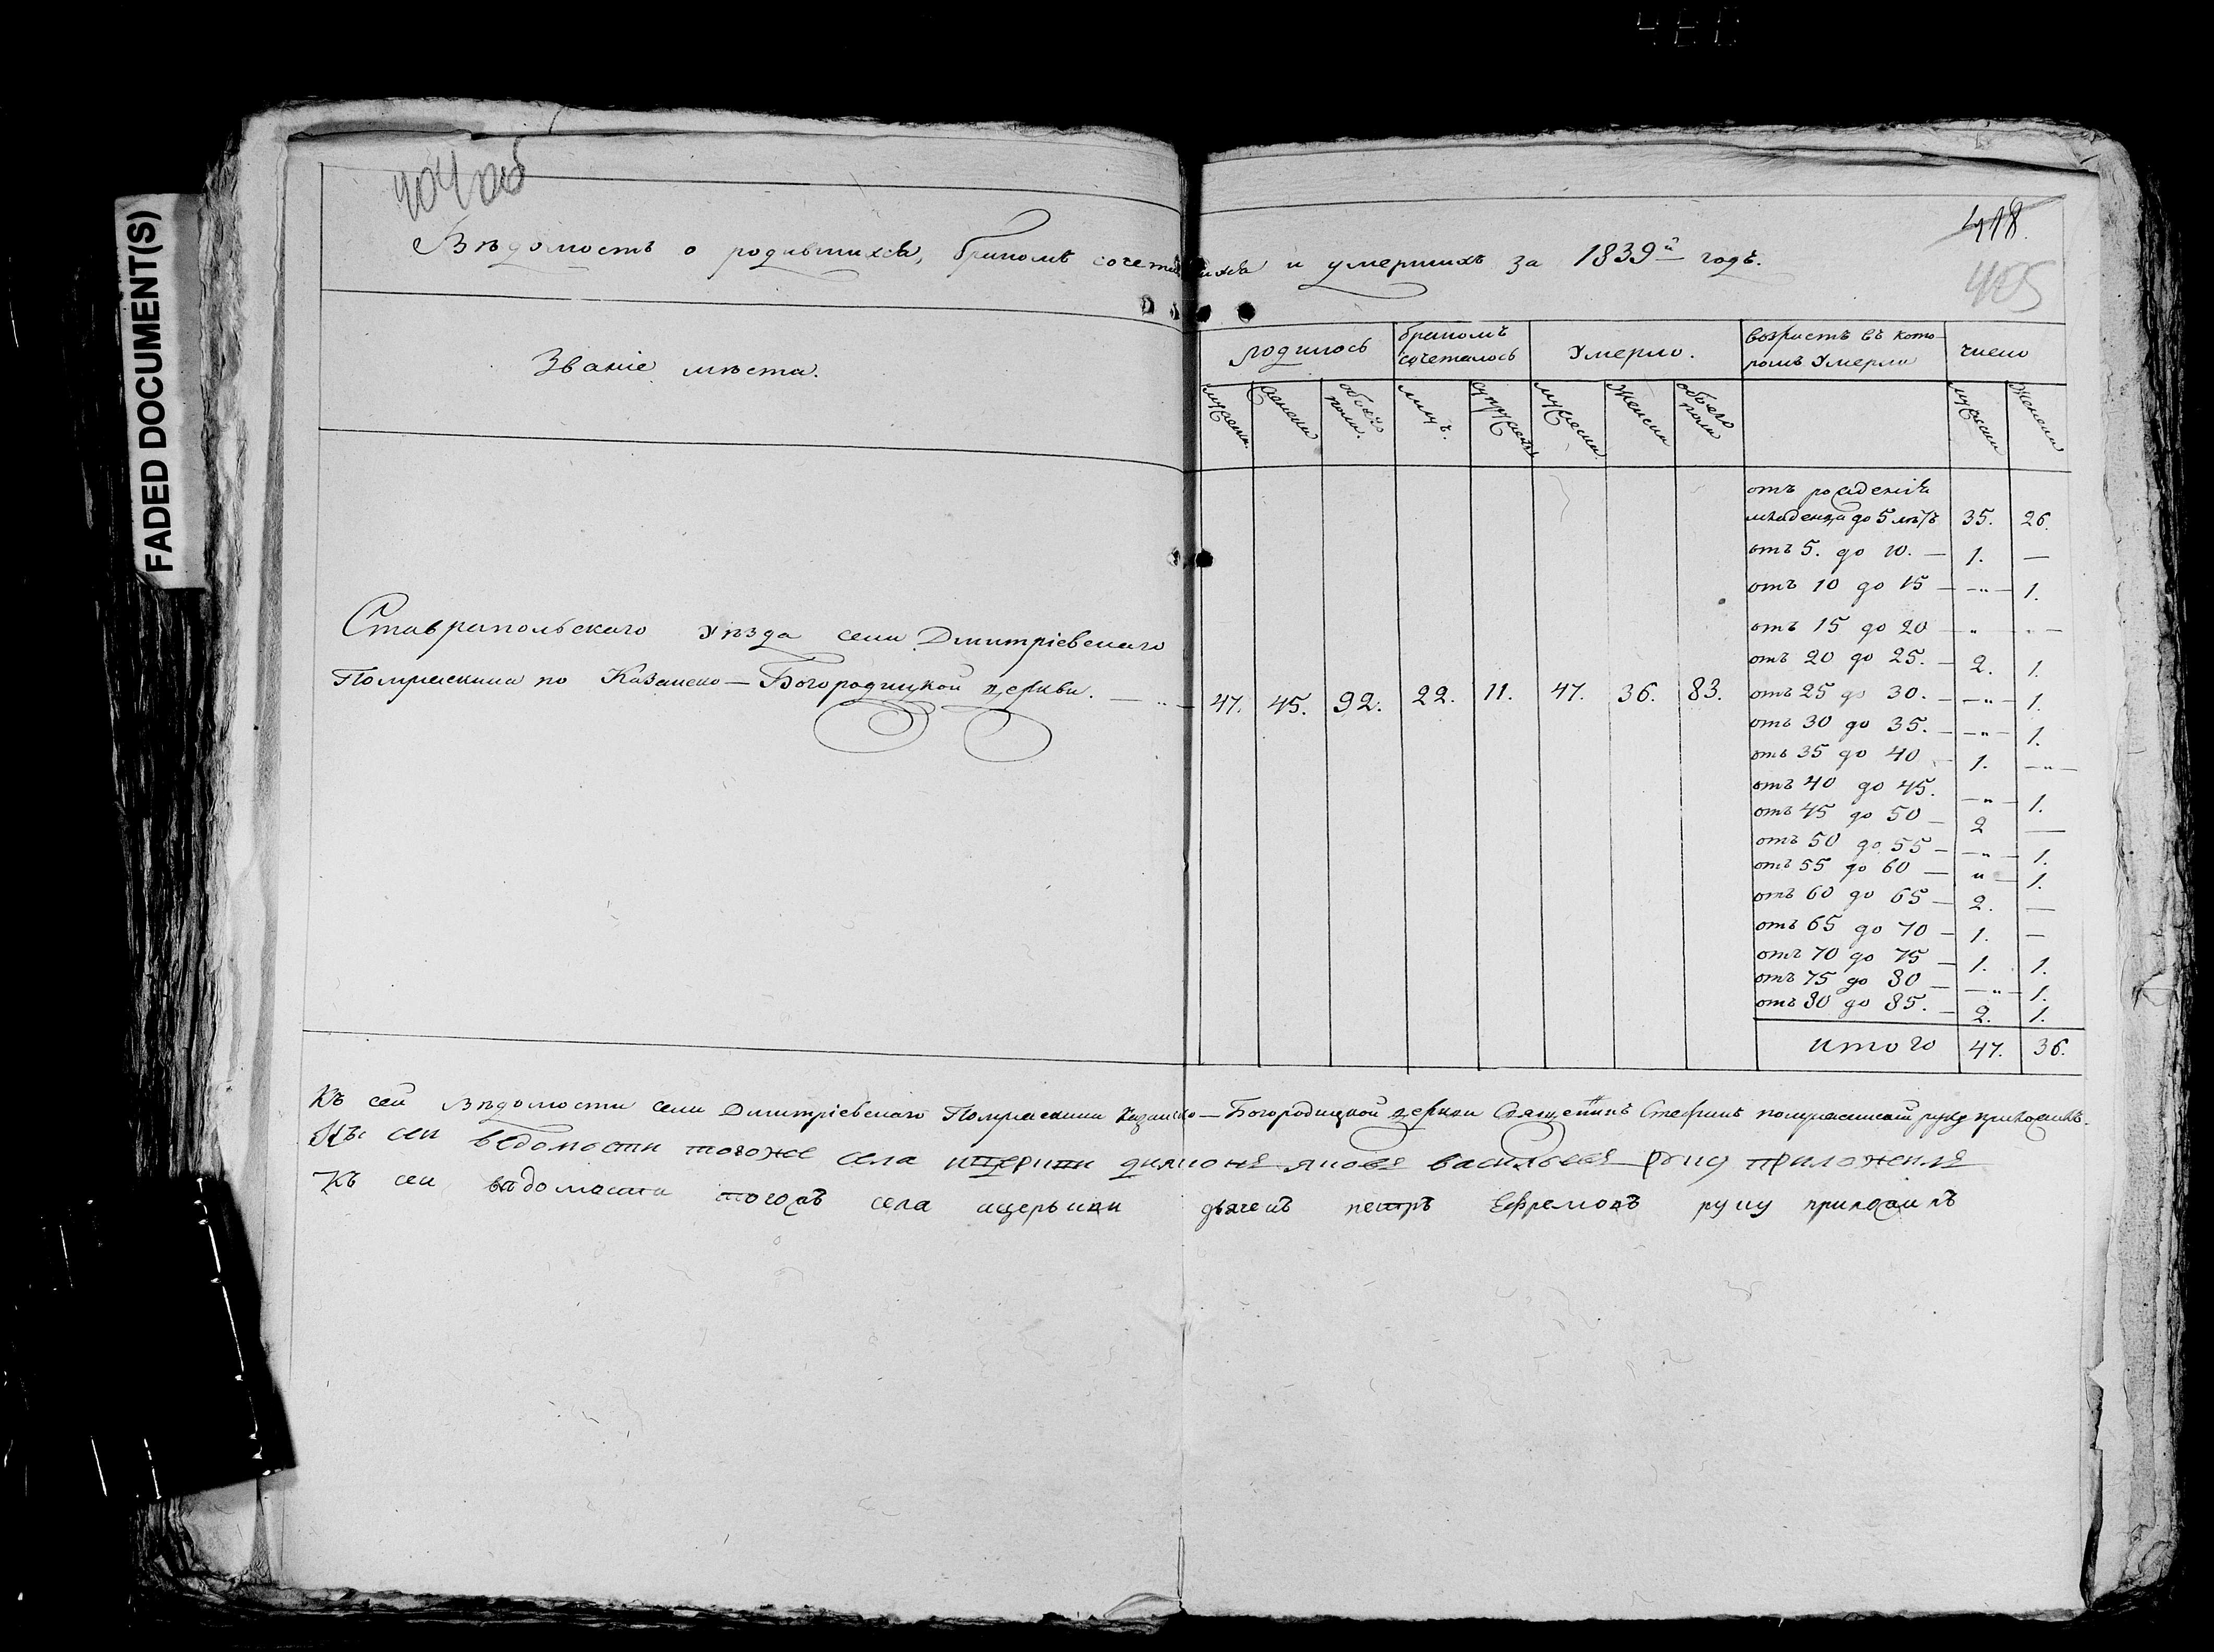 FADED DOCUMENT(S)
404 об
418.
405
Вѣдомость о родившихся, бракомъ сочетавшихся и умершихъ за 1839й годъ.
Званіе мѣста.
родилось
бракомъ сочеталось
Умерло.
возрастъ въ которомъ Умерли
число
мужеска.
женска
обоего пола.
лицъ.
супружествъ
мужеска.
женска
обоего пола
мужеска
женска
Ставропольскаго Уѣзда села Дмитріевскаго
Помряскина по Казанско-Богородицкой церкви. — „ — 47. 45. 92. 22. 11. 47. 36. 83.
отъ рожденія
младенца до 5 лѣтъ 35. 26.
отъ 5. до 10. — 1. —
отъ 10 до 15 — — „ — 1.
отъ 15 до 20 — „ — „ —
отъ 20 до 25. — 2. 1.
отъ 25 до 30. — — „ — 1.
отъ 30 до 35. — — „ — 1.
отъ 35 до 40 — 1. — „ —
отъ 40 до 45. — „ — 1.
отъ 45 до 50 — 2 —
отъ 50 до 55 — — „ — 1.
отъ 55 до 60 — „ — 1.
отъ 60 до 65 — 2. —
отъ 65 до 70 — 1. —
отъ 70 до 75 — 1. 1.
отъ 75 до 80 — — „ — 1.
отъ 80 до 85. — 2. 1.
итого 47. 36.
Къ сей Вѣдомости села Дмитріевскаго Помряскина Казанско-Богородицкой церкви Священникъ Стефанъ руку приложилъ.
Къ сей ведомости тогоже села церкви Васильевъ руку приложилъ
Къ сей вѣдомости тогожъ села церькви дьячекъ петръ Ефремовъ руку приложилъ